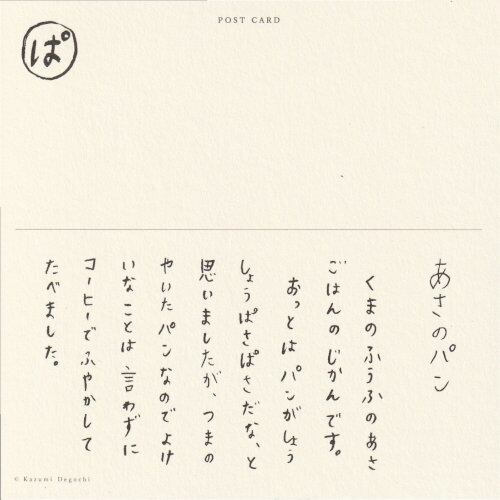 POST CARD
ぱ
あさのパン
くまのふうふのあさ
ごはんのじかんです。
おっとはパンがしょう
しょうぱさぱさだな、と
思いましたが、つまの
やいたパンなのでよけ
いなことは言わずに
コーヒーでふやかして
たべました。
© Kazumi Degochi